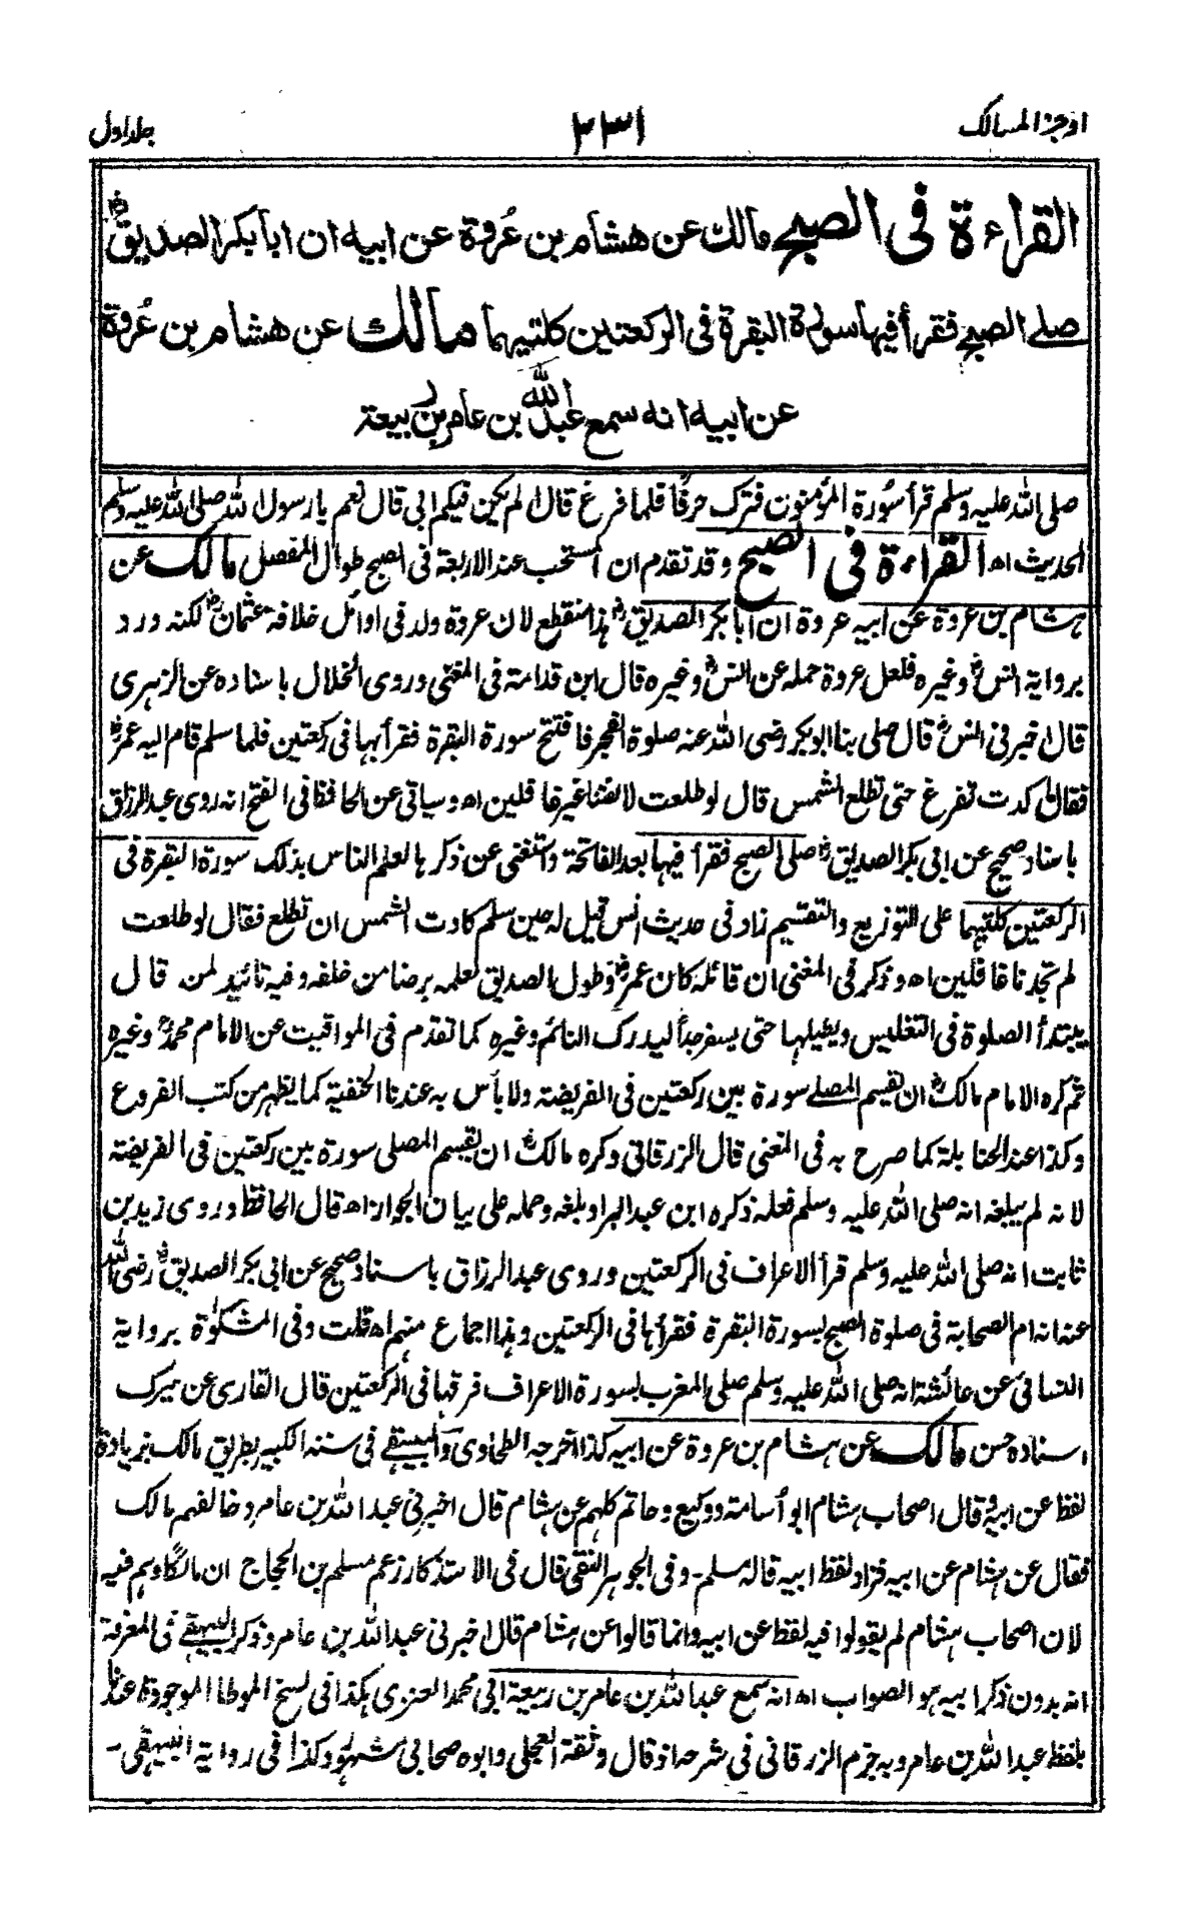 اوجز المسالك
٢٣١
جلد اول
القراءة فى الصبح مالك عن هشام بن عُروة عن ابيه ان ابا بكر الصديقؓ
صلے الصبح فقرأ فيها سورة البقرة فى الركعتين كلتيهما مالك عن هشام بن عُروة
عن ابيه انه سمع عبد الله بن عامر بن ربيعة
صلى الله عليه وسلم قرأ سُورة المؤمنون فترك حرفًا فلما فرغ قال الم يكن فيكم ابى قال نعم يا رسول الله صلى الله عليه وسلم
الحديث اھ القراءة فى الصبح وقد تقدم ان المستحب عند الاربعة فى الصبح طوال المفصل مالك عن
هشام بن عروة عن ابيه عروة ان ابا بكر الصديقؓ هذا منقطع لان عروة ولد فى اوائل خلافة عثمانؓ لكنه ورد
برواية انسؓ وغيره فلعل عروة حمله عن انسؓ وغيره قال ابن قدامة فى المغنى وروى الخلال باسناده عن الزهرى
قال اخبرنى انسؓ قال صلى بنا ابو بكر رضى الله عنه صلوة الفجر فافتتح سورة البقرة فقرأ بها فى ركعتين فلما سلم قام اليه عمرؓ
فقال كدت تفرغ حتى تطلع الشمس قال لو طلعت لالفتنا غير غافلين اھ وسياتى عن الحافظ فى الفتح انه روى عبد الرزاق
باسناد صحيح عن ابى بكر الصديقؓ صلى الصبح فقرأ فيها بعد الفاتحة واستغنى عن ذكرها لعلم الناس بذلك سورة البقرة فى
الركعتين كلتيهما على التوزيع والتقسيم زاد فى حديث انس قيل له حين سلم كادت الشمس ان تطلع فقال لو طلعت
لم تجدنا غافلين اھ وذكر فى المغنى ان قائله كان عمرؓ وطول الصديق لعلمه برضا من خلفه وفيه تائيد لمن قال
يبتدأ الصلوة فى التغليس ويطيلها حتى يسفر جدا ليدرك النائم وغيره كما تقدم فى المواقيت عن الامام محمدؒ وغيره
ثم كره الامام مالكؒ ان يقسم المصلے سورة بين ركعتين فى الفريضة ولا بأس به عندنا الحنفية كما يظهر من كتب الفروع
وكذا عند الحنابلة كما صرح به فى المغنى قال الزرقانى وكره مالكؒ ان يقسم المصلى سورة بين ركعتين فى الفريضة
لانه لم يبلغه انه صلى الله عليه وسلم فعله ذكره ابن عبد البر او بلغه وحمله على بيان الجواز اھ قال الحافظ وروى زيد بن
ثابت انه صلى الله عليه وسلم قرأ الاعراف فى الركعتين وروى عبد الرزاق باسناد صحيح عن ابى بكر الصديقؓ رضى الله
عنه انه ام الصحابة فى صلوة الصبح بسورة البقرة فقرأها فى الركعتين وهذا اجماع منهم اھ قلت وفى المشكوٰة برواية
النسائى عن عائشة انه صلى الله عليه وسلم صلى المغرب بسورة الاعراف فرقها فى الركعتين قال القارى عن ميرك
اسناده حسن مالك عن هشام بن عروة عن ابيه كذا اخرجه الطحاوى والبيهقے فى سننه الكبير بطريق مالك بزيادة
لفظ عن ابيه وقال اصحاب هشام ابو أسامة ووكيع وحاتم كلهم عن هشام قال اخبرنى عبد الله بن عامر وخالفهم مالك
فقال عن هشام عن ابيه فزاد لفظ ابيه قاله مسلم- وفى الجوهر النقى قال فى الاستذكار زعم مسلم بن الحجاج ان مالكًا وهم فيه
لان اصحاب هشام لم يقولوا فيه لفظ عن ابيه وانما قالوا عن هشام قال اخبرنى عبد الله بن عامر وذكر البيهقے فى المعرفة
انه بدون ذكر ابيه هو الصواب اھ انه سمع عبد الله بن عامر بن ربيعة ابى محمد العنزى هكذا فى نسخ الموطا الموجودة عندنا
بلفظ عبد الله بن عامر وبه جزم الزرقانى فى شرحه اذ قال وثقة العجلى وابوه صحابى شهير وكذا فى رواية البيهقى-